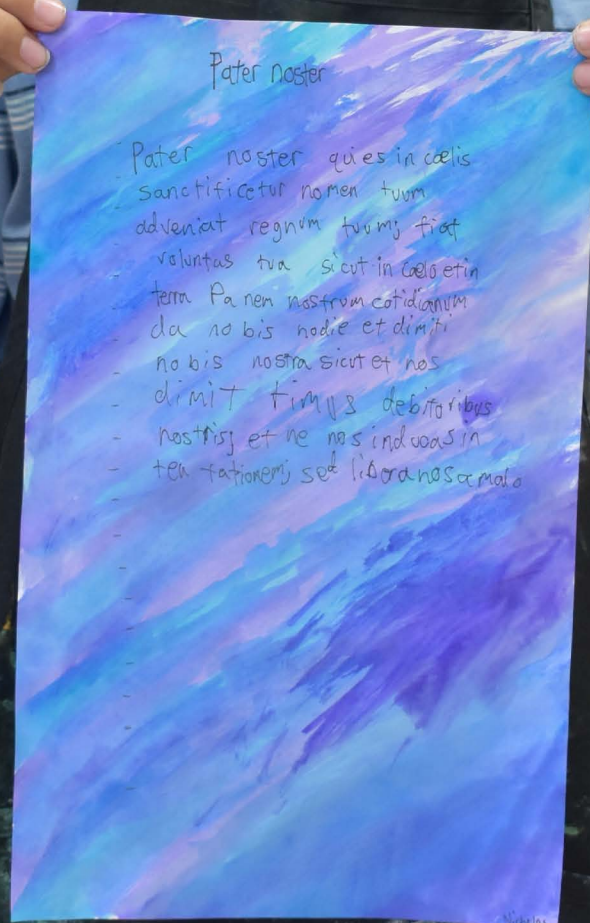 Pater noster
Pater noster qui es in cœlis
sanctificetur nomen tuum
adveniat regnum tuum; fiat
voluntas tua sicut in cœlo et in
terra Panem nostrum cotidianum
da nobis hodie et dimiti
nobis nostra sicut et nos
dimittimus debitoribus
nostris; et ne nos inducas in
tentationem; sed libera nos a malo